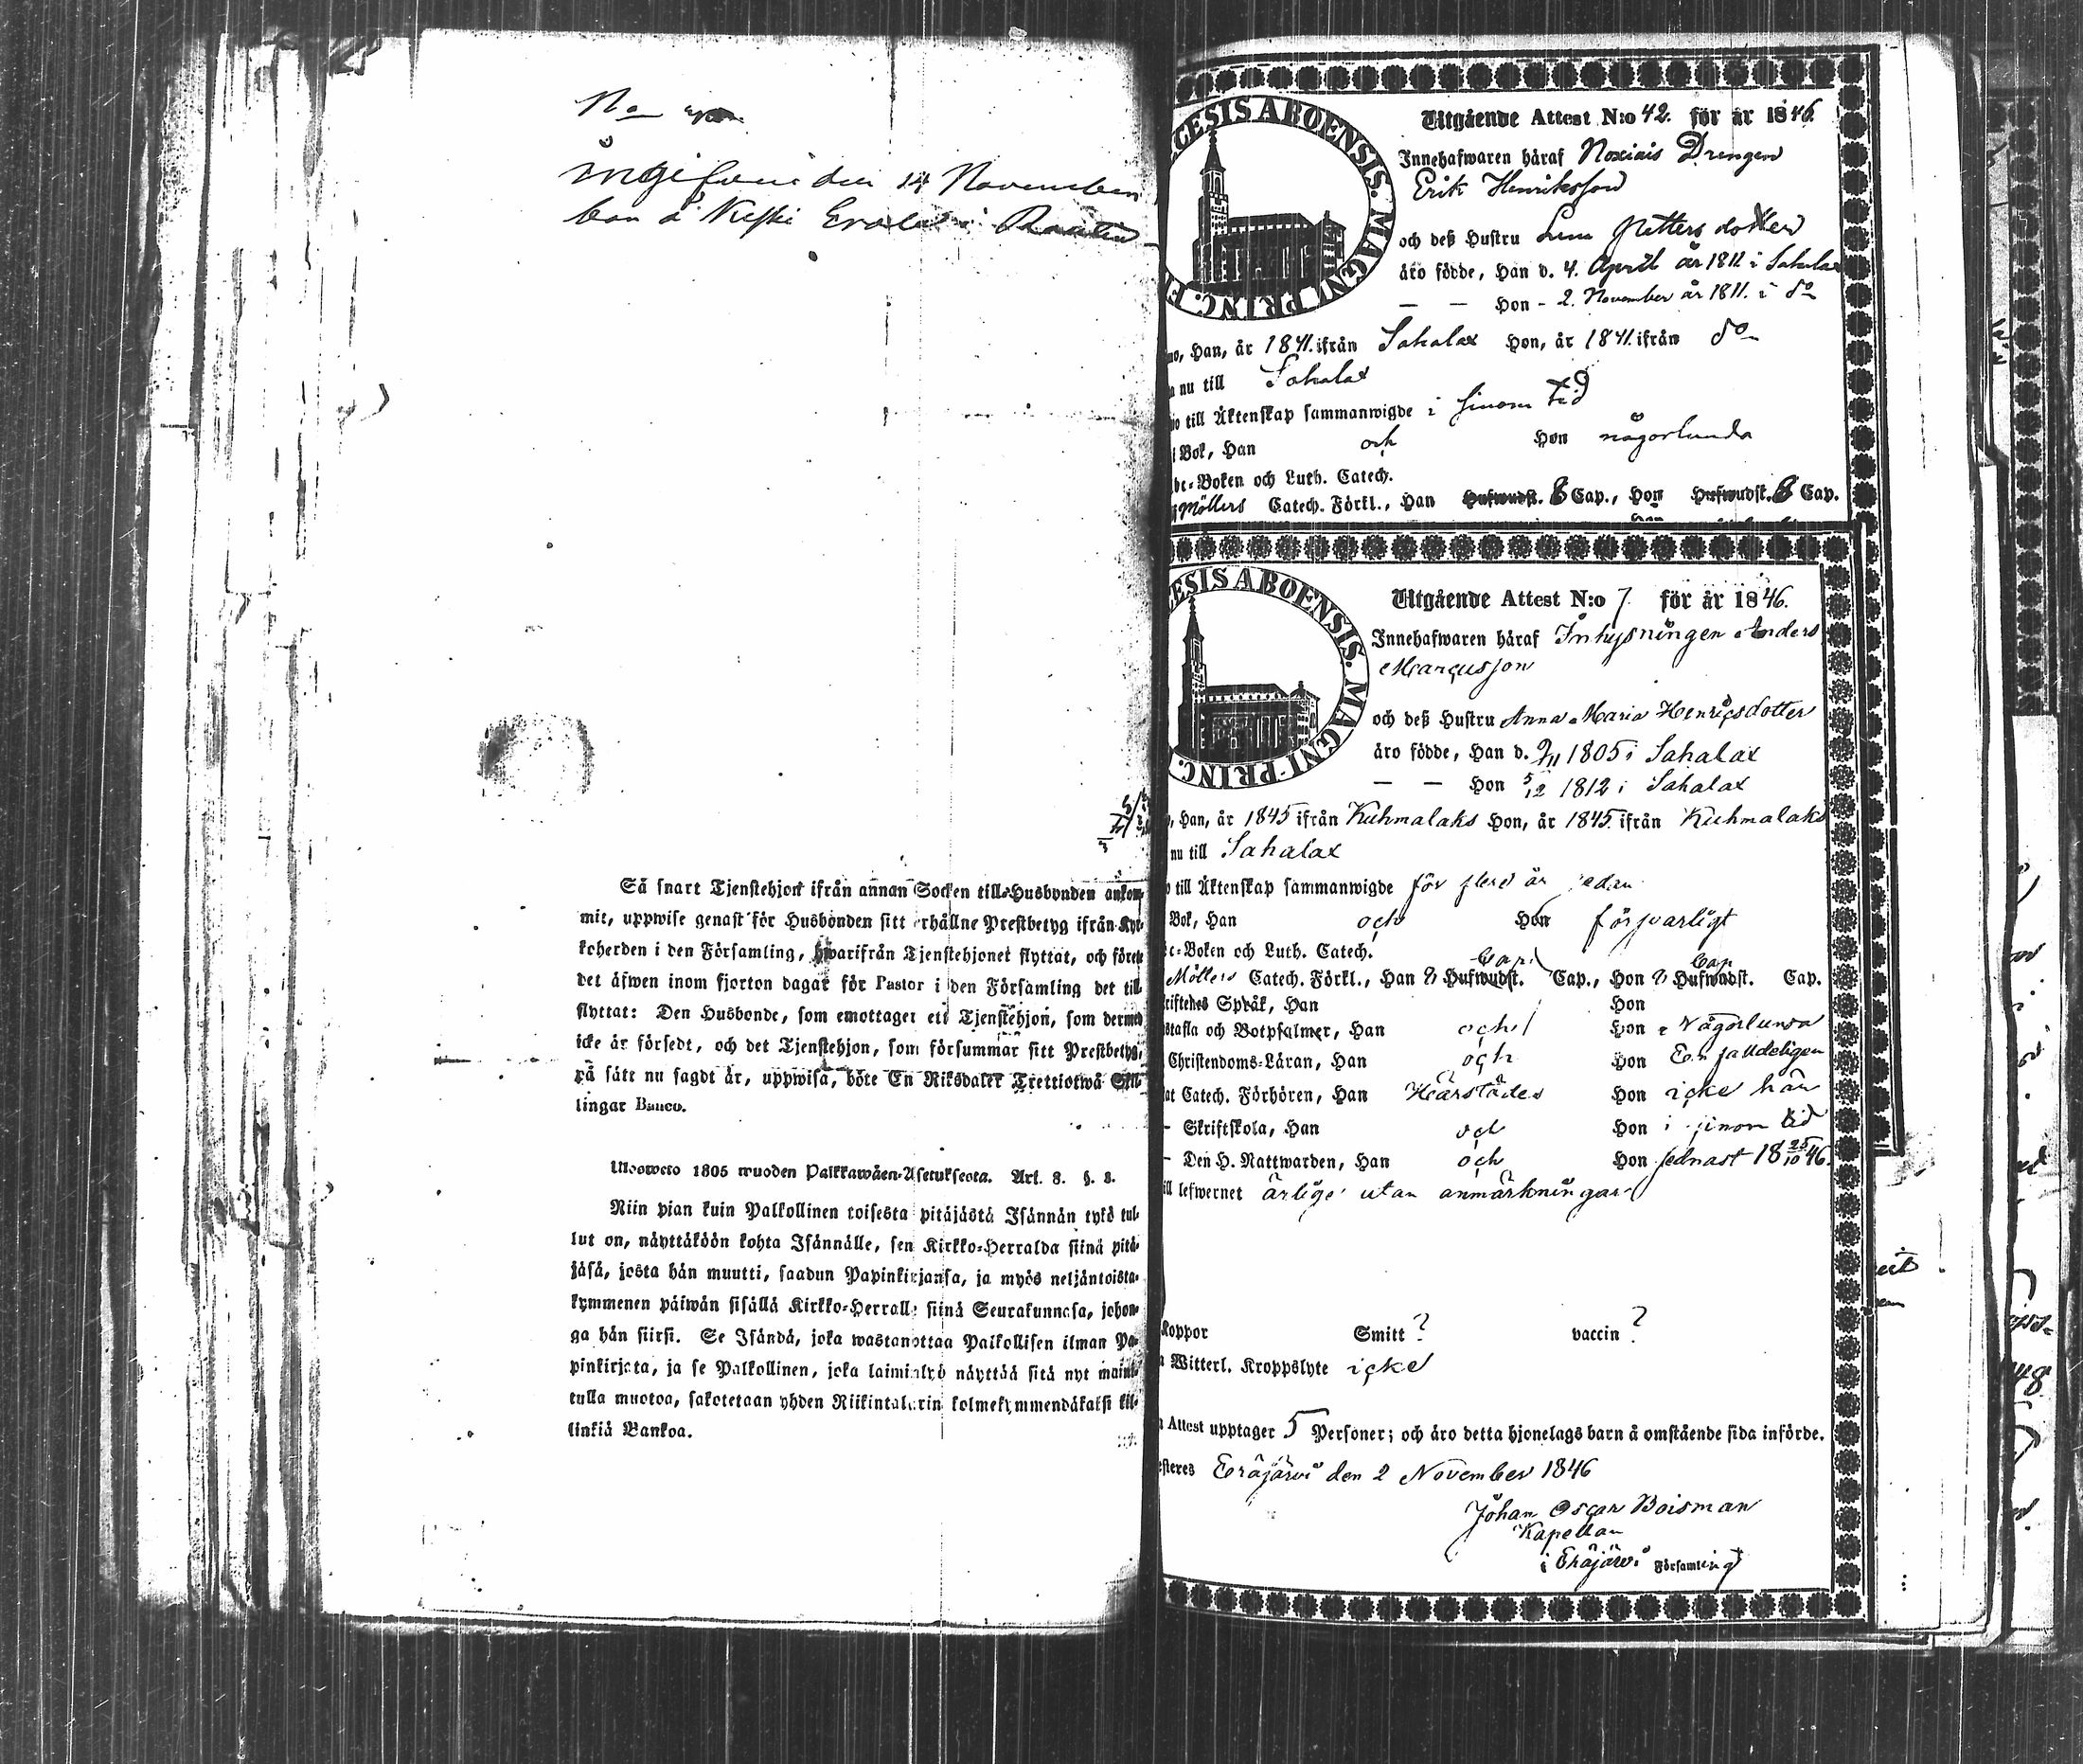 No
ingifven den 14 November
Så snart Tjenstehjon ifrån annan Socken till Husbonden ankom-
mit, uppwise genast för Husbonden sitt erhållne Prestbetyg ifrån Kyr-
koherden i den Församling, hwarifrån Tjenstehjonet flyttat, och förete
det äfwen inom fjorton dagar för Pastor i den Församling det till-
flyttat: Den Husbonde, som emottager ett Tjenstehjon, som dermed
icke är försedt, och det Tjenstehjon, som försummar sitt Prestbetyg,
på sätt nu sagdt är, uppwisa, böte En Riksdaler Trettiotwå Skil-
lingar Banco.
Uloswето 1805 wuoden Palkkawäen-Asetuksesta. Art. 8. §. 8.
Niin pian kuin Palkollinen toisesta pitäjästä Isännän tykö tul-
lut on, näyttäköön kohta Isännälle, sen Kirkko-Herralda siinä pitä-
jäsä, josta hän muutti, saadun Papinkirjansa, ja myös neljäntoista-
kymmenen päiwän sisällä Kirkko-Herralle siinä Seurakunnasa, johon-
ga hän siirsi. Se Isändä, joka wastanottaa Palkollisen ilman Pa-
pinkirjata, ja se Palkollinen, joka laiminlyö näyttää sitä nyt maini-
tulla muotoa, sakotetaan yhden Riikintalarin kolmekymmendäkaksi kil-
linkiä Bankoa.
ECESIS ABOENSIS. MAGNI PRINC. FI
Utgående Attest N:o 42. för år 1846
Innehafwaren häraf Drengen
Erik Henriksson
och deß Hustru dotter
äro födde, Han d. 4. April år 1811 i Sahalax
— — Hon - 2. November år 1811. i do
no, Han, år 1841. ifrån Sahalax Hon, år 1841. ifrån do
nu till Sahalax
till Äktenskap sammanwigde i sinom tid
i Bok, Han och Hon någorlunda
bc-Boken och Luth. Catech.
Möllers Catech. Förkl., Han Hufwudst. 8 Cap., Hon Hufwudst. 8 Cap.
ECESIS ABOENSIS. MAGNI-PRINC.
Utgående Attest N:o 7. för år 1846.
Innehafwaren häraf Inhysningen Anders
Marcusson
och deß Hustru Anna Maria Henricsdotter
äro födde, Han d. 9/11 1805 i Sahalax
— — Hon 5/12 1812 i Sahalax
, Han, år 1845 ifrån Kuhmalaks Hon, år 1845 ifrån Kuhmalaks
nu till Sahalax
till Äktenskap sammanwigde för flere år sedan
Bok, Han och Hon försvarligt
c-Boken och Luth. Catech.
Möllers Catech. Förkl., Han 8 Hufwudst. Cap. Cap., Hon 8 Hufwudst. Cap. Cap.
riftenes Språk, Han Hon
stafla och Botpsalmer, Han och Hon Någorlunda
Christendoms-Läran, Han och Hon Enfalldeligen
at Catech. Förhören, Han Härstädes Hon icke här
— Skriftskola, Han och Hon i sinom tid
— Den H. Nattwarden, Han och Hon sednast 18 25/10 46.
ill lefwernet ärlige utan anmärkningar
Koppor Smitt ? vaccin ?
Witterl. Kroppslyte icke
Attest upptager 5 Personer; och äro detta hjonelags barn å omstående sida införde.
esteres Eräjärvi den 2 November 1846
Johan Oscar Boisman
Kapellan
i Eräjärvi Församling